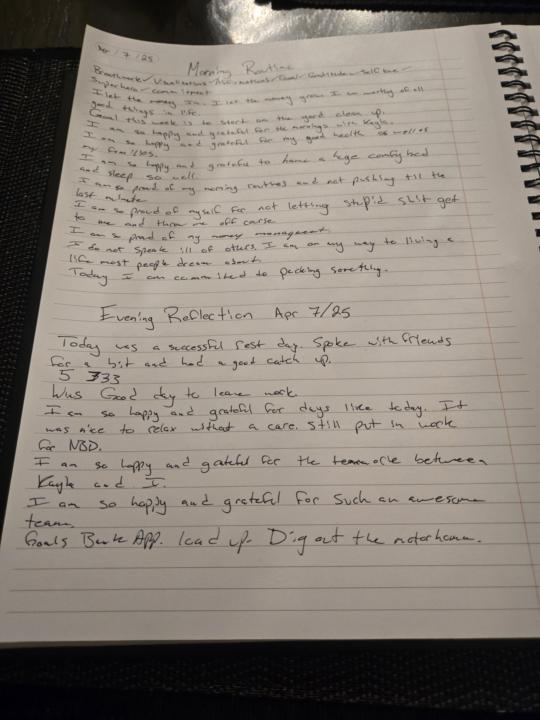 Apr/7/25
Morning Routine
Breathwork ✓ Visualizations ✓ Affirmations ✓ Goal ✓ Gratitude ✓ Self love ✓
Superhero ✓ commitment
I let the money In. I let the money grow I am worthy of all
good things in life.
Goal this week is to start on the yard clean up.
I am so happy and grateful for the mornings with Kayla.
I am so happy and grateful for my good health as well as
my families.
I am so happy and grateful to have a huge comfy bed
and sleep so well.
I am so proud of my morning routines and not pushing till the
last minute
I am so proud of myself for not letting stupid shit get
to me and throw me off course
I am so proud of my money management.
I do not speak ill of others. I am on my way to living a
life most people dream about.
Today I am commited to packing something.
Evening Reflection Apr 7/25
Today was a successful rest day. Spoke with friends
for a bit and had a good catch up.
5 333
Was Good day to leave work.
I am so happy and grateful for days like today. It
was nice to relax without a care. Still put in work
for NBD.
I am so happy and grateful for the between
Kayla and I.
I am so happy and grateful for such an awesome
team.
Goals Bank App. load up. Dig out the motorhome.